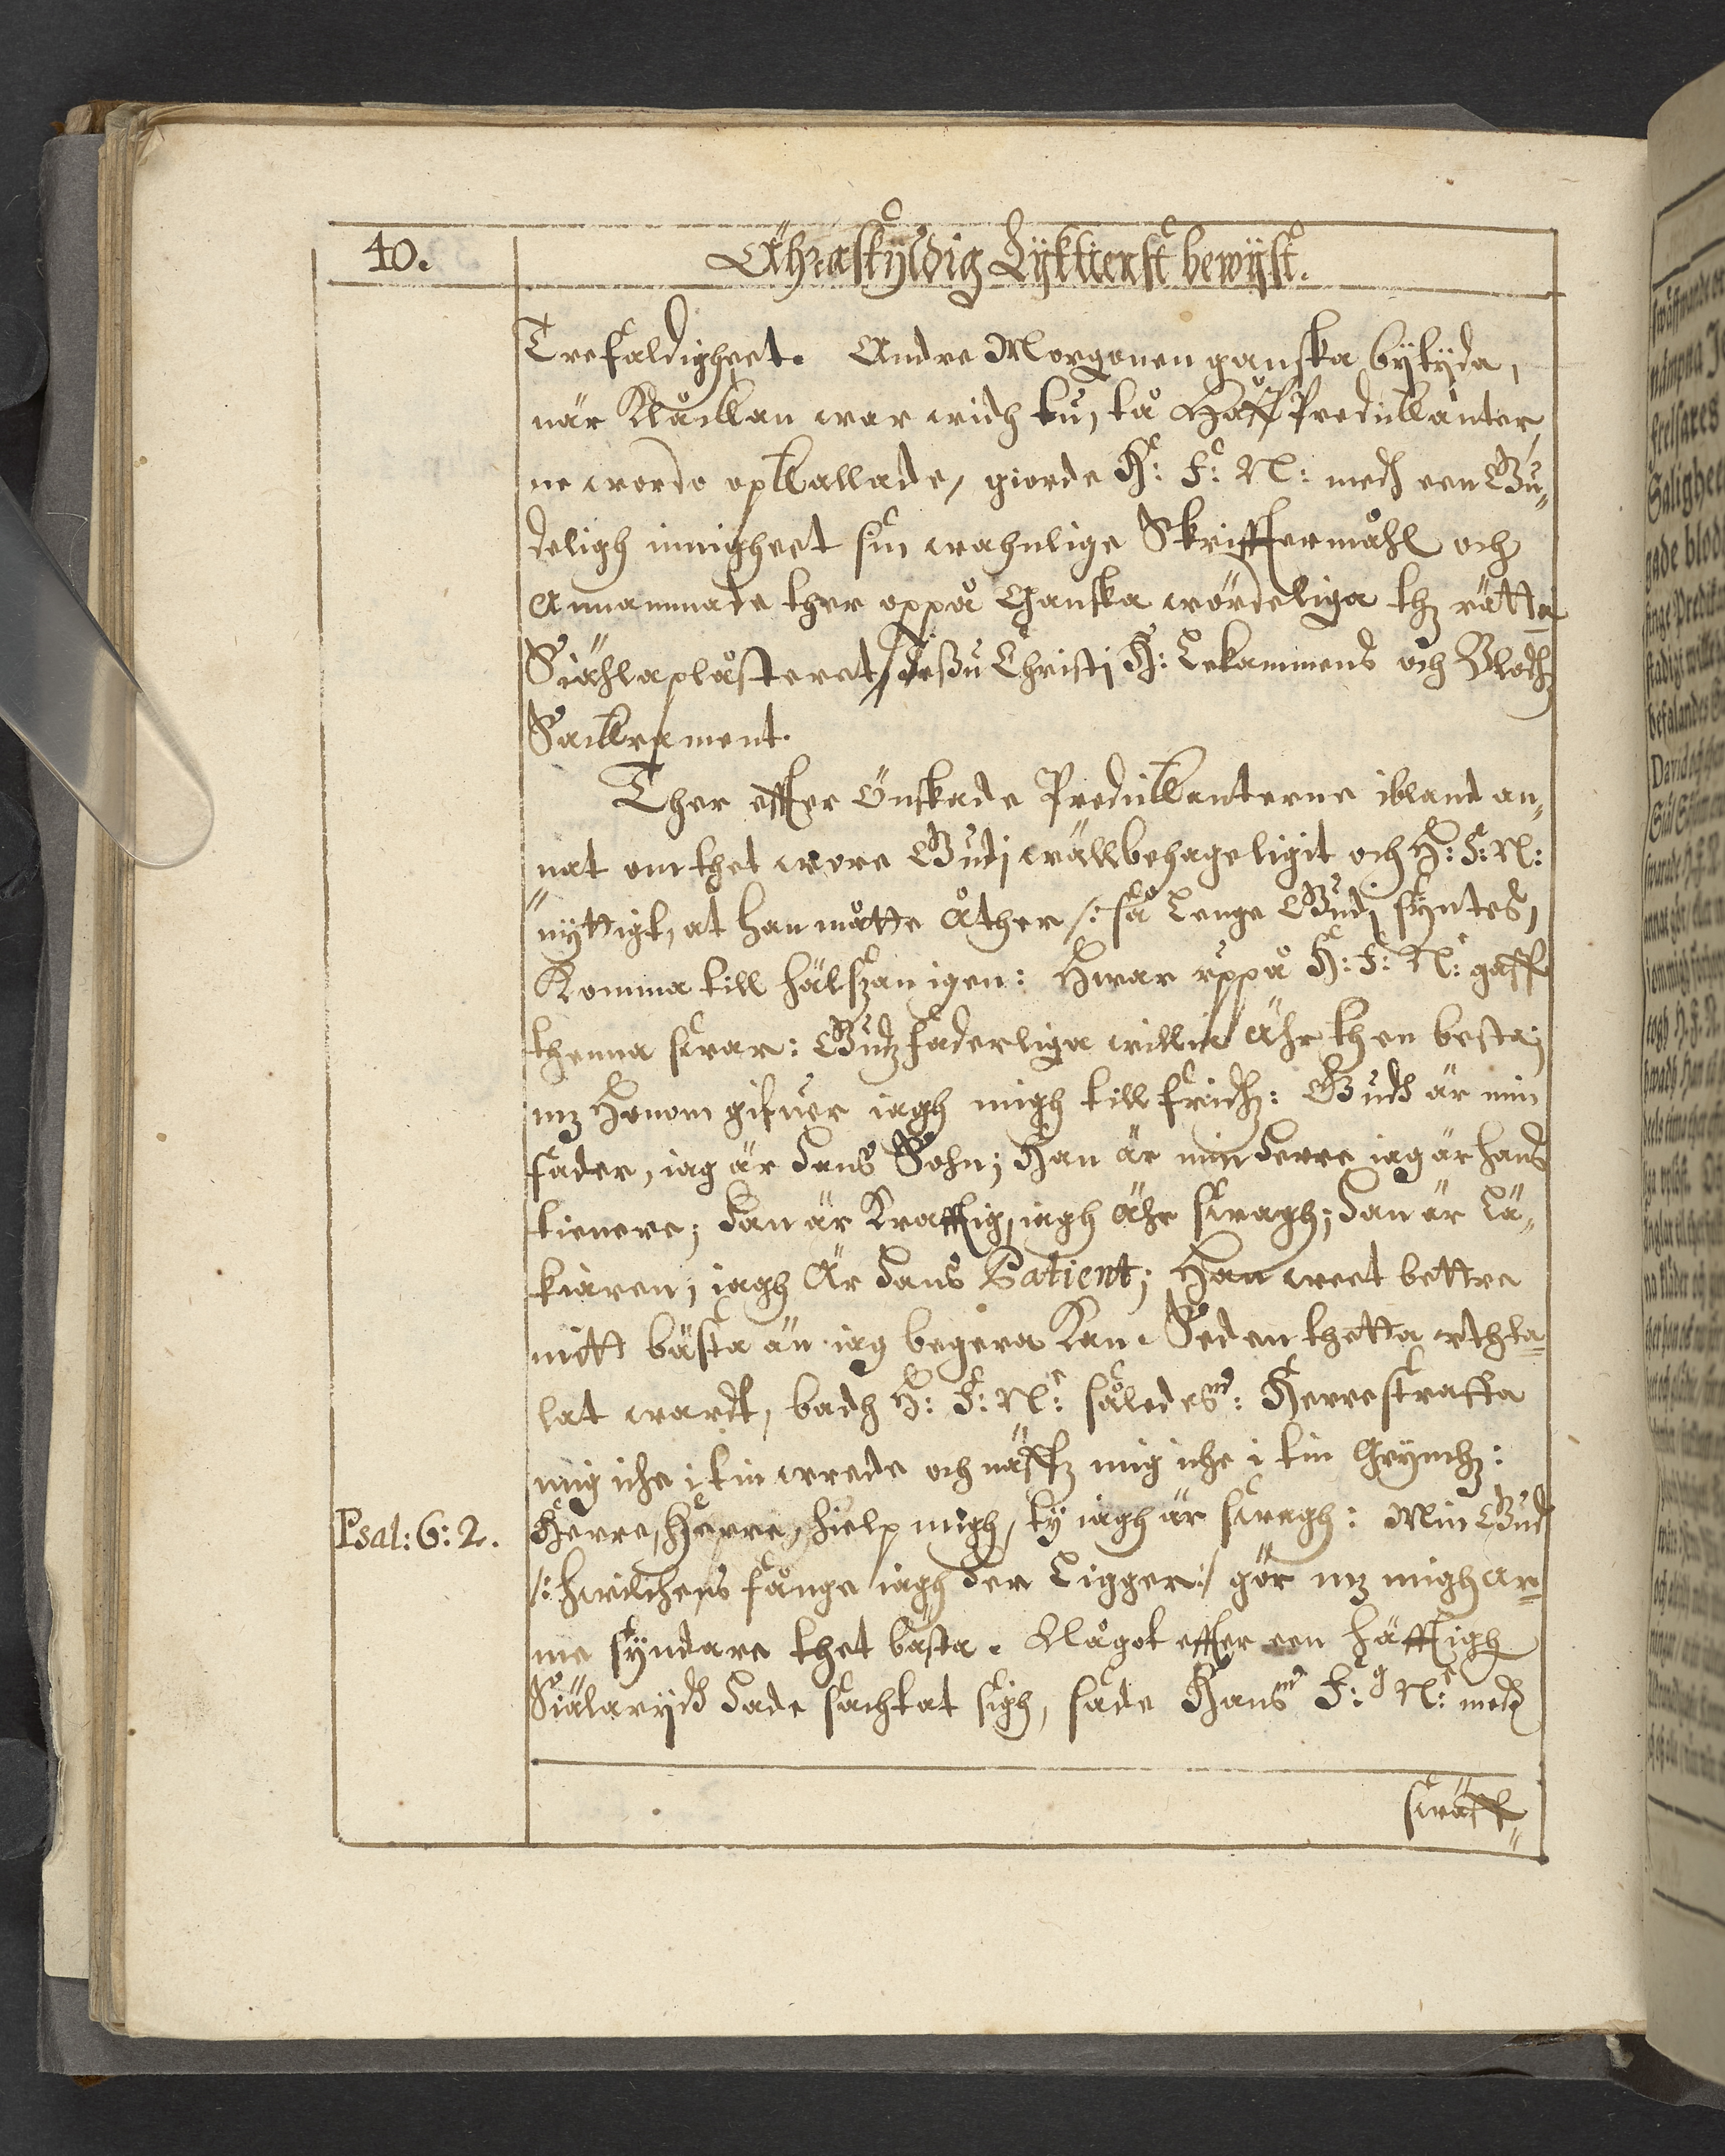 40.
Ähraskyldig Lyktienst bewyst.
Trefaldigheet. Andre Morgonen ganska bytyda,
när Klåckan war widh tu, tå Hoff Predickanter
ne wordo opkallade, giorde H: F: N: medh een Gu„
deligh innigheet sin wahnlige Skrifftermåhl och
Annammade ther oppå Ganska wördeliga thz rätta
Siählaplåsteret, Jesu Christi H: Lekammens och Blodhz
Sacrament.
Ther effter Önskade Predickanterne ibland an„
nat om thet wore Gudi wällbehageligit och H: F: N:
nyttigt, at han måtte Åther /: så Lenge Gudi syntes,
Komma till hälszan igen: Hwar uppå H: F: N: gaff
thenna swar: Gudz faderliga willie Ähr then besta;
mz Honom gifuer iagh migh till fridz: Gudh är min
fader, iag är Hans Sohn; Han är min Herre iag är hans
tienere; Han är Krafftig, iagh Ähr swagh; Han är Lä„
kiaren, iagh Är Hans Patient; Han weet bettre
mitt bästa än iag begera Kan. Sedan thetta uthta„
lat wardt, badh H: F: N: således: Herre straffa
mig icke i tin wrede och näffz mig icke i tin Grymhz:
Psal: 6: 2. Herre, Herre, hielp migh, ty iagh är swagh: Min Gud
/: Hwilckens fånge iagh Her Ligger :/ gör mz migh ar„
me syndare thet bästa. Något effter een häfftigh
Siälaryck Hade sachtat sigh, sade Hans F: N: medh
swäff„